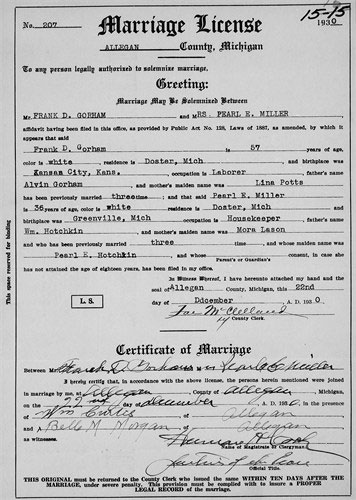 15-15
No. 207
Marriage License
1930
ALLEGAN County, Michigan
To any person legally authorized to solemnize marriage,
Greeting:
Marriage May Be Solemnized Between
Mr. FRANK D. GORHAM and MRS. PEARL E. MILLER
affidavit having been filed in this office, as provided by Public Act No. 128, Laws of 1887, as amended, by which it
appears that said
Frank D. Gorham is 57 years of age,
color is white, residence is Doster, Mich and birthplace was
Kansas City, Kans., occupation is Laborer, father's name
Alvin Gorham, and mother's maiden name was Lina Potts
and has been previously married three time; and that said Pearl E. Miller
is 36 years of age, color is white, residence is Doster, Mich and
birthplace was Greenville, Mich, occupation is Housekeeper, father's name
Wm. Hotchkin, and mother's maiden name was Mora Lason
and who has been previously married three time, and whose maiden name was
Pearl E. Hotchkin, and whose Parent's or Guardian's consent, in case she
has not attained the age of eighteen years, has been filed in my office.
In Witness Whereof, I have hereunto attached my hand and the
seal of Allegan County, Michigan, this 22nd
L. S.
day of Ddcember A. D. 1930
County Clerk.
This space reserved for binding
Certificate of Marriage
Between Mr. Frank D. Gorham and Pearl E. Miller
I hereby certify that, in accordance with the above license, the persons herein mentioned were joined
in marriage by me, at Allegan County of Allegan, Michigan,
on the 22nd day of December A. D. 1930, in the presence
of Wm Curtis of Allegan
and Belle M. Morgan of Allegan
as witnesses.
Name of Magistrate or Clergyman.
Justice of the Peace
Official Title.
THIS ORIGINAL must be returned to the County Clerk who issued the same WITHIN TEN DAYS AFTER THE
MARRIAGE, under severe penalty. This provision must be complied with to insure a PROPER
LEGAL RECORD of the marriage.